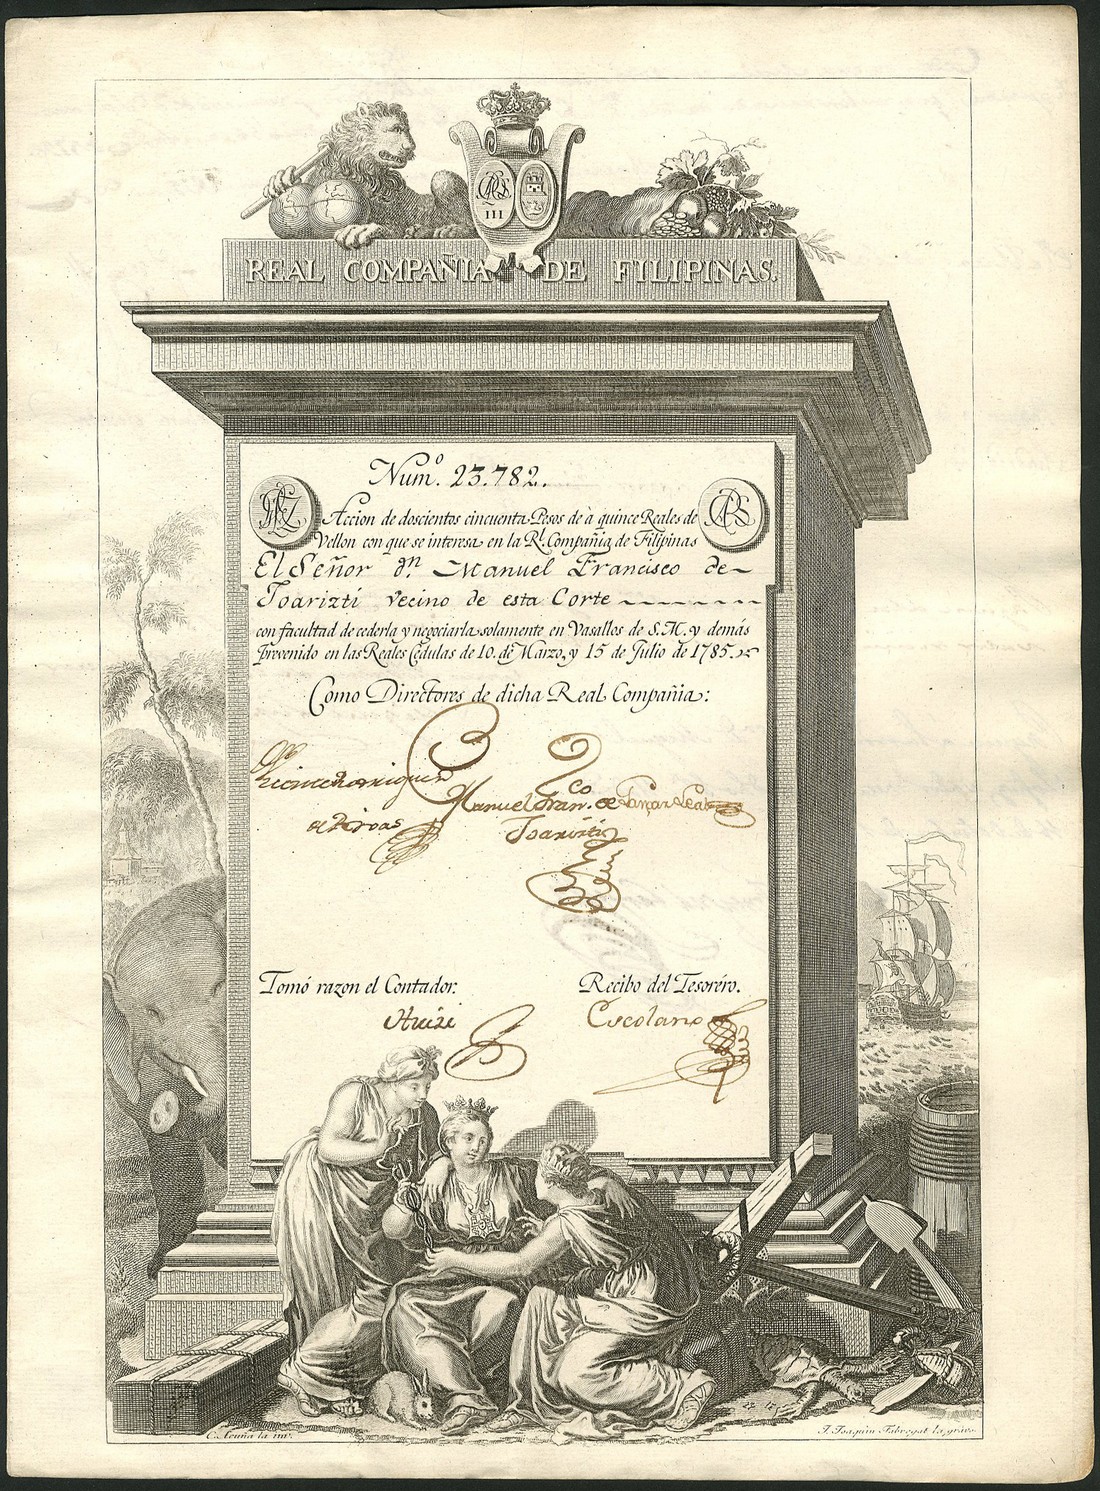 III
REAL COMPAÑIA DE FILIPINAS.
Num.º 23.782.
Accion de doscientos cincuenta Pesos de à quince Reales de
Vellon con que se interesa en la Rl. Compañia de Filipinas
El Señor Dn. Manuel Francisco de
Joarizti vecino de esta Corte
con facultad de cederla y negociarla solamente en Vasallos de S.M. y demás
prevenido en las Reales Cedulas de 10. de Marzo, y 15 de Julio de 1785.
Como Directores de dicha Real Compañia:
Vicente Rodriguez
de Rivas
Manuel Fran.co de
Joarizti
Tomó razon el Contador.
Recibo del Tesoréro.
Escolano
C. Acuña la inv.
J. Joaquin Fabregat la gravó.